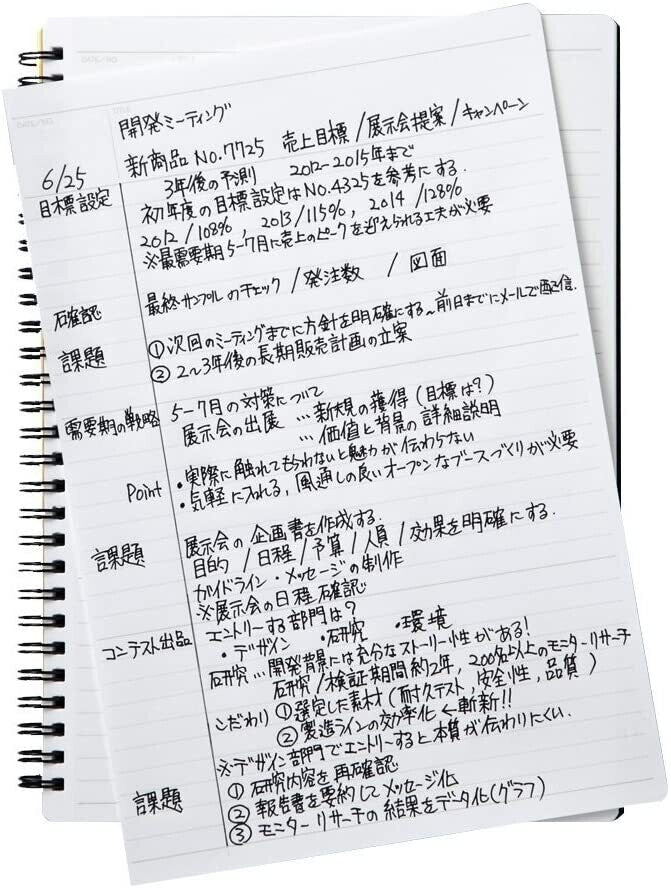 開発ミーティング
6/25 新商品 No.7725 売上目標/展示会提案/キャンペーン
目標設定 3年後の予測 2012-2015年まで
初年度の目標設定はNo.4325を参考にする.
2012/108%, 2013/115%, 2014/128%
※最需要期5~7月に売上のピークを迎えられる工夫が必要
確認 最終サンプルのチェック/発注数 /図面
課題 ①次回のミーティングまでに方針を明確にする~前日までにメールで配信.
②2~3年後の長期販売計画の立案
需要期の戦略 5-7月の対策について
展示会の出展 …新規の獲得(目標は?)
…価値と背景の詳細説明
Point ・実際に触れてもらわないと魅力が伝わらない
・気軽に入れる,風通しの良いオープンなブースづくりが必要
課題 展示会の企画書を作成する.
目的/日程/予算/人員/効果を明確にする.
ガイドライン・メッセージの制作
※展示会の日程確認
コンテスト出品 エントリーする部門は?
・デザイン ・研究 ・環境
研究…開発背景には充分なストーリー性がある!
研究/検証期間約2年,200名以上のモニターリサーチ
こだわり ①選定した素材(耐久テスト,安全性,品質)
②製造ラインの効率化←斬新!!
※デザイン部門でエントリーすると本質が伝わりにくい.
課題 ①研究内容を再確認
②報告書を要約してメッセージ化
③モニターリサーチの結果をデータ化(グラフ)